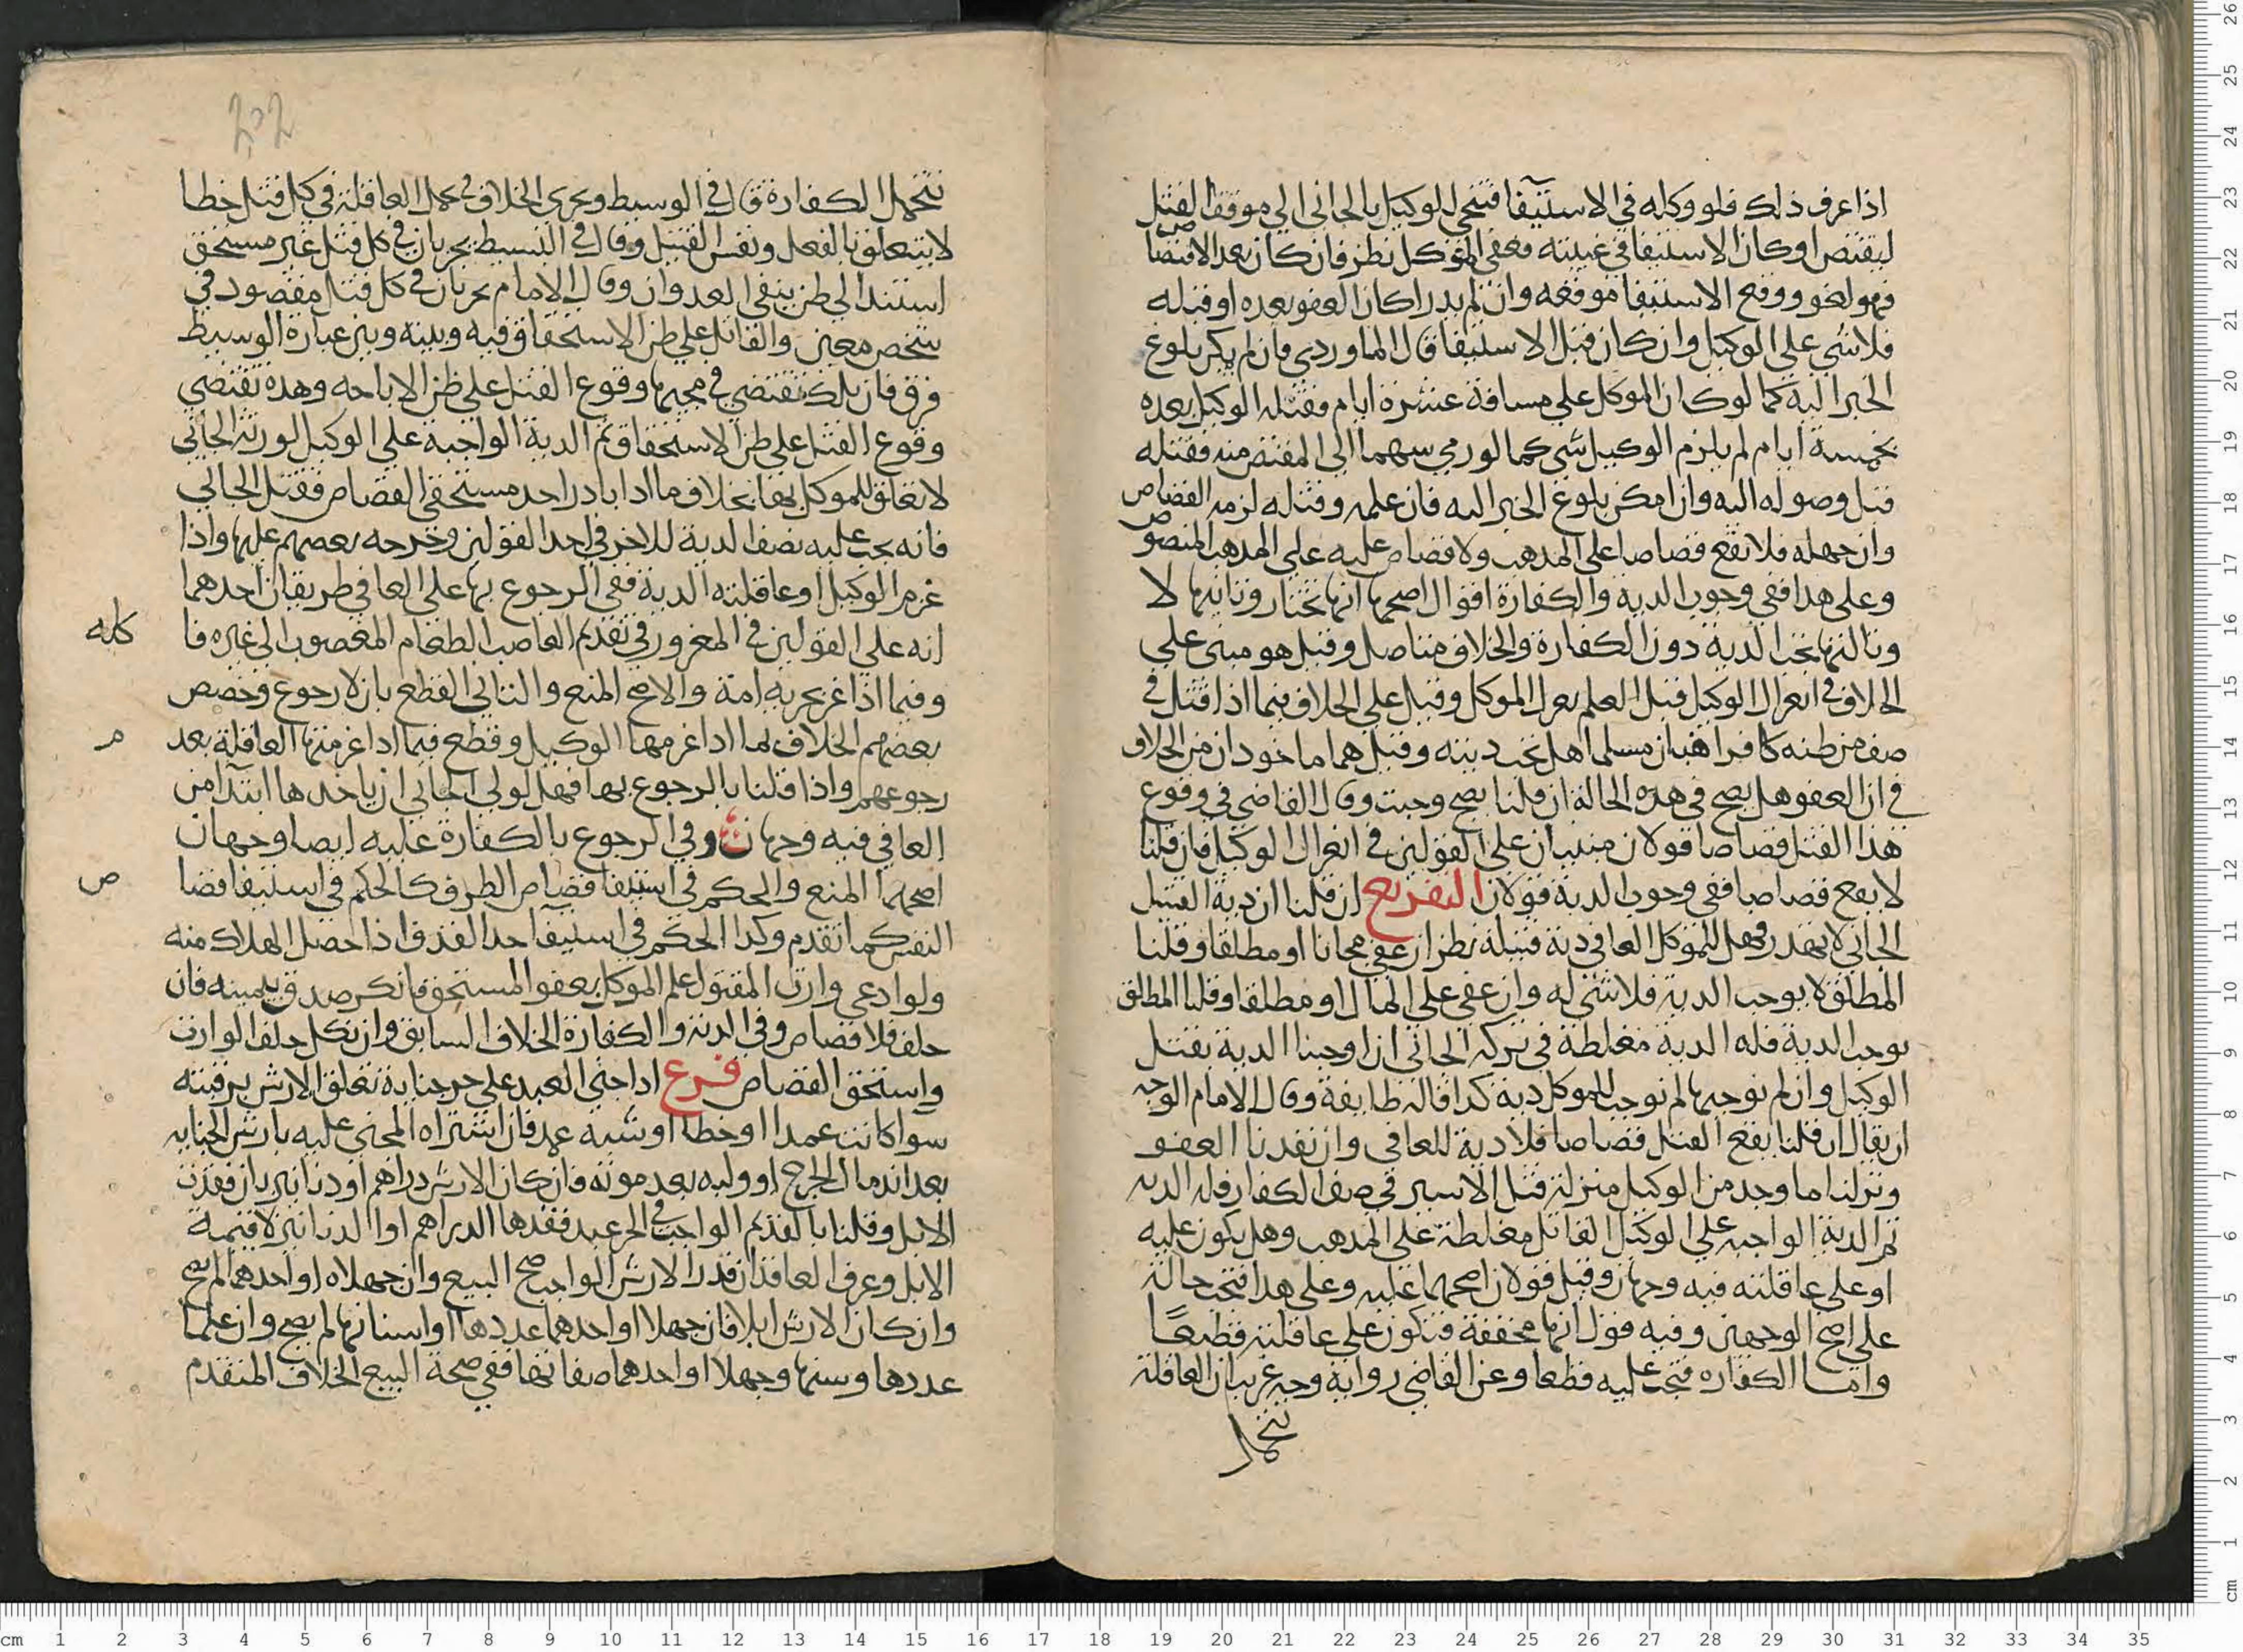 اذا عرف ذلك فلو وكله في الاستيفا فتنحي الوكيل بالجاني الي موقف القتل
ليقتص او كان الاستيفا في غيبته فعفي الموكل نظر فان كان بعد الاقتصا ص
فهو لغو ووقع الاستيفا موقعه وان لم يدر اكان العفو بعده او قبله
فلا شي علي الوكيل وان كان قبل الاستيفا قال الماوردي فان لم يكن بلوغ
الخبر اليه كما لو كان الموكل علي مسافة عشرة ايام فقتله الوكيل بعده
بخمسة ايام لم يلزم الوكيل شي كما لو رمي سهما الي المقتص منه فقتله
قبل وصوله اليه وان امكن بلوغ الخبر اليه فان علمه وقتله لزمه القصاص
وان جهله فلا يقع قصاصا علي المذهب ولا قصاص عليه علي المذهب المنصو ص
وعلي هذا ففي وجوب الدية والكفارة اقوال اصحها انها تجبان وثانيها لا
وثالثها تجب الدية دون الكفارة والخلاف متاصل وقيل هو مبني علي
الخلاف في انعزال الوكيل قبل العلم بعزل الموكل وقيل علي الخلاف فيما اذا قتل في
صف من ظنه كافرا فبان مسلما هل تجب ديته وقيل هما ماخوذان من الخلاف
في ان العفو هل يصح في هذه الحالة ان قلنا يصح وجبت وقال القاضي في وقوع
هذا القتل قصاصا قولان مبنيان علي القولين في انعزال الوكيل فان قلنا
لا يقع قصاصا ففي وجوب الدية قولان التفريع ان قلنا ان دية القتيل
الجاني لا تهدر وهل للموكل العافي دية قتيله نظر ان عفي مجانا او مطلقا وقلنا
المطلق لا يوجب الدية فلا شي له وان عفي علي المال او مطلقا وقلنا المطلق
يوجب الدية فله الدية مغلظة في تركة الجاني ان اوجبنا الدية بقتل
الوكيل وان لم نوجبها لم نوجب للموكل دية كذا قاله طايفة وقال الامام الوجه
ان يقال ان قلنا يقع القتل قصاصا فلا دية للعافي وان نفذنا العفو
ونزلنا ما وجد من الوكيل منزلة قتل الاسير في صف الكفار فله الدية
ثم الدية الواجبة علي الوكيل القاتل مغلظة علي المذهب وهل يكون عليه
او علي عاقلته فيه وجهان وقيل قولان اصحهما عليه وعلي هذا فتجب حالة
علي اصح الوجهين وفيه قول انها مخففة فتكون علي عاقلته قطعا
واما الكفارة فتجب عليه قطعا وعن القاضي رواية وجه غريب ان العاقلة
تتحمل
202
تتحمل الكفارة قال في الوسيط ويجري الخلاف في تحمل العاقلة في كل قتل خطا
لا يتعلق بالفعل ونفس القتيل وقال في البسيط يجريان في كل قتل غير مستحق
استند الي ظن ينفي العدوان وقال الامام يجريان في كل قتل مقصود في
شخص معين والقاتل علي ظن الاستحقاق فيه وبينه وبين عبارة الوسيط
فرق فان تلك تقتضي في مجيها وقوع القتل علي ظن الاباحه وهذه تقتضي
وقوع القتل علي ظن الاستحقاق ثم الدية الواجبة علي الوكيل لورثة الجاني
لا تعلق للموكل بها بخلاف ما اذا بادر احد مستحقي القصاص فقتل الجاني
فانه يجب عليه نصف الدية للاخر في احد القولين وخرجه بعضهم عليها واذا
غرم الوكيل او عاقلته الدية ففي الرجوع بها علي العافي طريقان احدهما
انه علي القولين في المغرور في تقديم الغاصب الطعام المغصوب الي غيره فا كله
وفيما اذا غر بحرية امة والاصح المنع والثاني القطع بان لا رجوع وخصص
بعضهم الخلاف بما اذا غرمها الوكيل وقطع فيما اذا غرمتها العاقلة بعد م
رجوعهم واذا قلنا بالرجوع بها فهل لولي الجاني ان ياخذها ابتدا من
العافي فيه وجهان ث وفي الرجوع بالكفارة عليه ايضا وجهان
اصحهما المنع والحكم في استيفا قصاص الطرف كالحكم في استيفا قصا ص
النفس كما تقدم وكذا الحكم في استيفا حد القذف اذا حصل الهلاك منه
ولو ادعي وارث المقتول علم الموكل بعفو المستحق فانكر صدق بيمينه فان
حلف فلا قصاص وفي الدية والكفارة الخلاف السابق وان نكل حلف الوارث
واستحق القصاص فرع اذا جني العبد علي حر جناية تعلق الارش برقبته
سوا كانت عمدا او خطا او شبه عمد فان اشتراه المجني عليه بارش الجناية
بعد اندمال الجرح او وليه بعد موته فان كان الارش دراهم او دنانير بان فقدت
الابل وقلنا بالقديم الواجب في الحر عند فقدها الدراهم او الدنانير لا قيمة
الابل وعرف العاقدان قدر الارش الواجب صح البيع وان جهلاه او احدهما لم يصح
وان كان الارش ابلا فان جهلا او احدهما عددها او اسنانها لم يصح وان علما
عددها وسنها وجهلا او احدهما صفاتها ففي صحة البيع الخلاف المتقدم